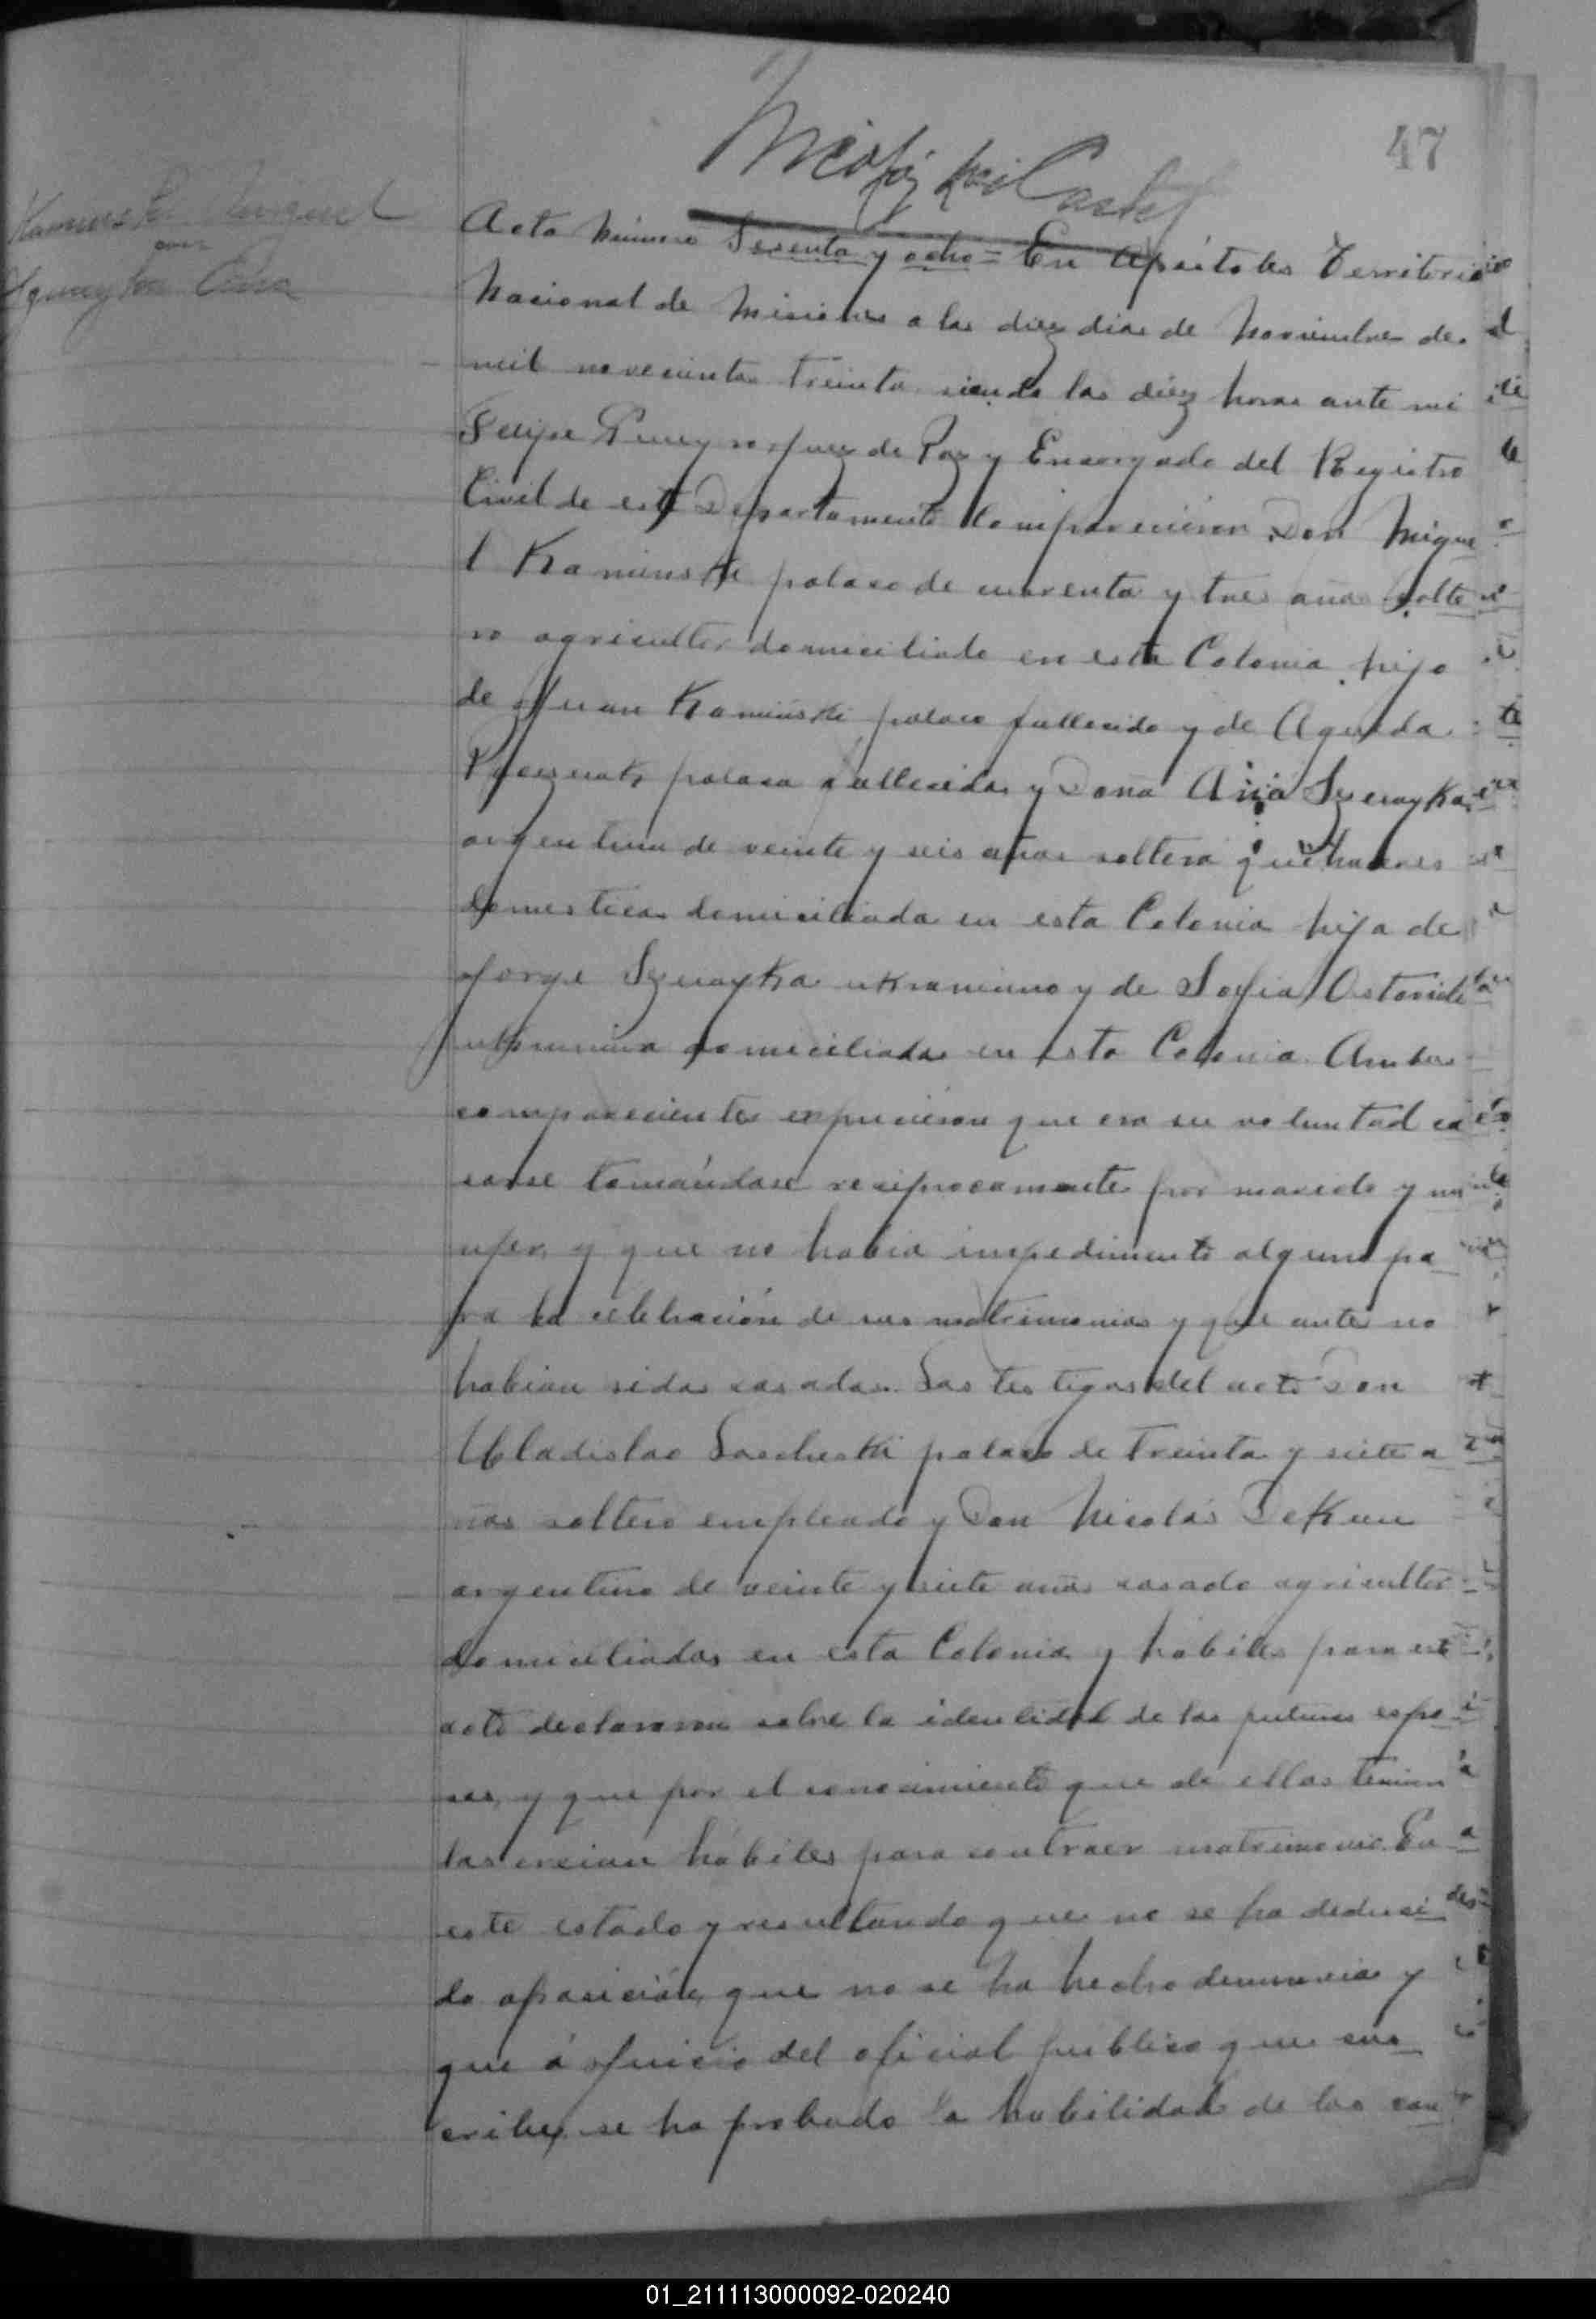 47
Kaminski Miguel
con
Szewayka Ana
Acta Número Sesenta y ocho = En Apóstoles Territorio
Nacional de Misiones a los diez dias de Noviembre de
mil novecientos treinta siendo las diez horas ante mi
Felipe Juez de Paz y Encargado del Registro
Civil de este Departamento Comparecieron Don Migue
l Kaminski polaco de cuarenta y tres años solte
ro agricultor domiciliado en esta Colonia hijo
de Juan Kaminski polaco fallecido y de Agueda
polaca fallecida y Doña Ana
argentina de veinte y seis años soltera quehaceres
domesticos domiciliada en esta Colonia hija de
Jorge ukraniano y de Sofia
ukraniana domiciliados en esta Colonia. Ambos
comparecientes expusieron que era su voluntad ca
sarse tomándose reciprocamente por marido y m
ujer, y que no habia impedimento alguno pa
ra la celebración de sus matrimonios y que antes no
habian sidos casados. Los testigos del acto Don
Uladislao polaco de treinta y siete a
ños soltero empleado y Don Nicolás Dekun
argentino de veinte y siete años casado agricultor
domiciliados en esta Colonia y hábiles para este
acto declararon sobre la identidad de los futuros espo
sos, y que por el conocimiento que de ellos tenian
los creian hábiles para contraer matrimonio. En
este estado y resultando que no se ha deduci
do oposición, que no se ha hecho denuncia y
que á juicio del oficial publico que sus
cribe, se ha probado la habilidad de los con
01_211113000092-020240